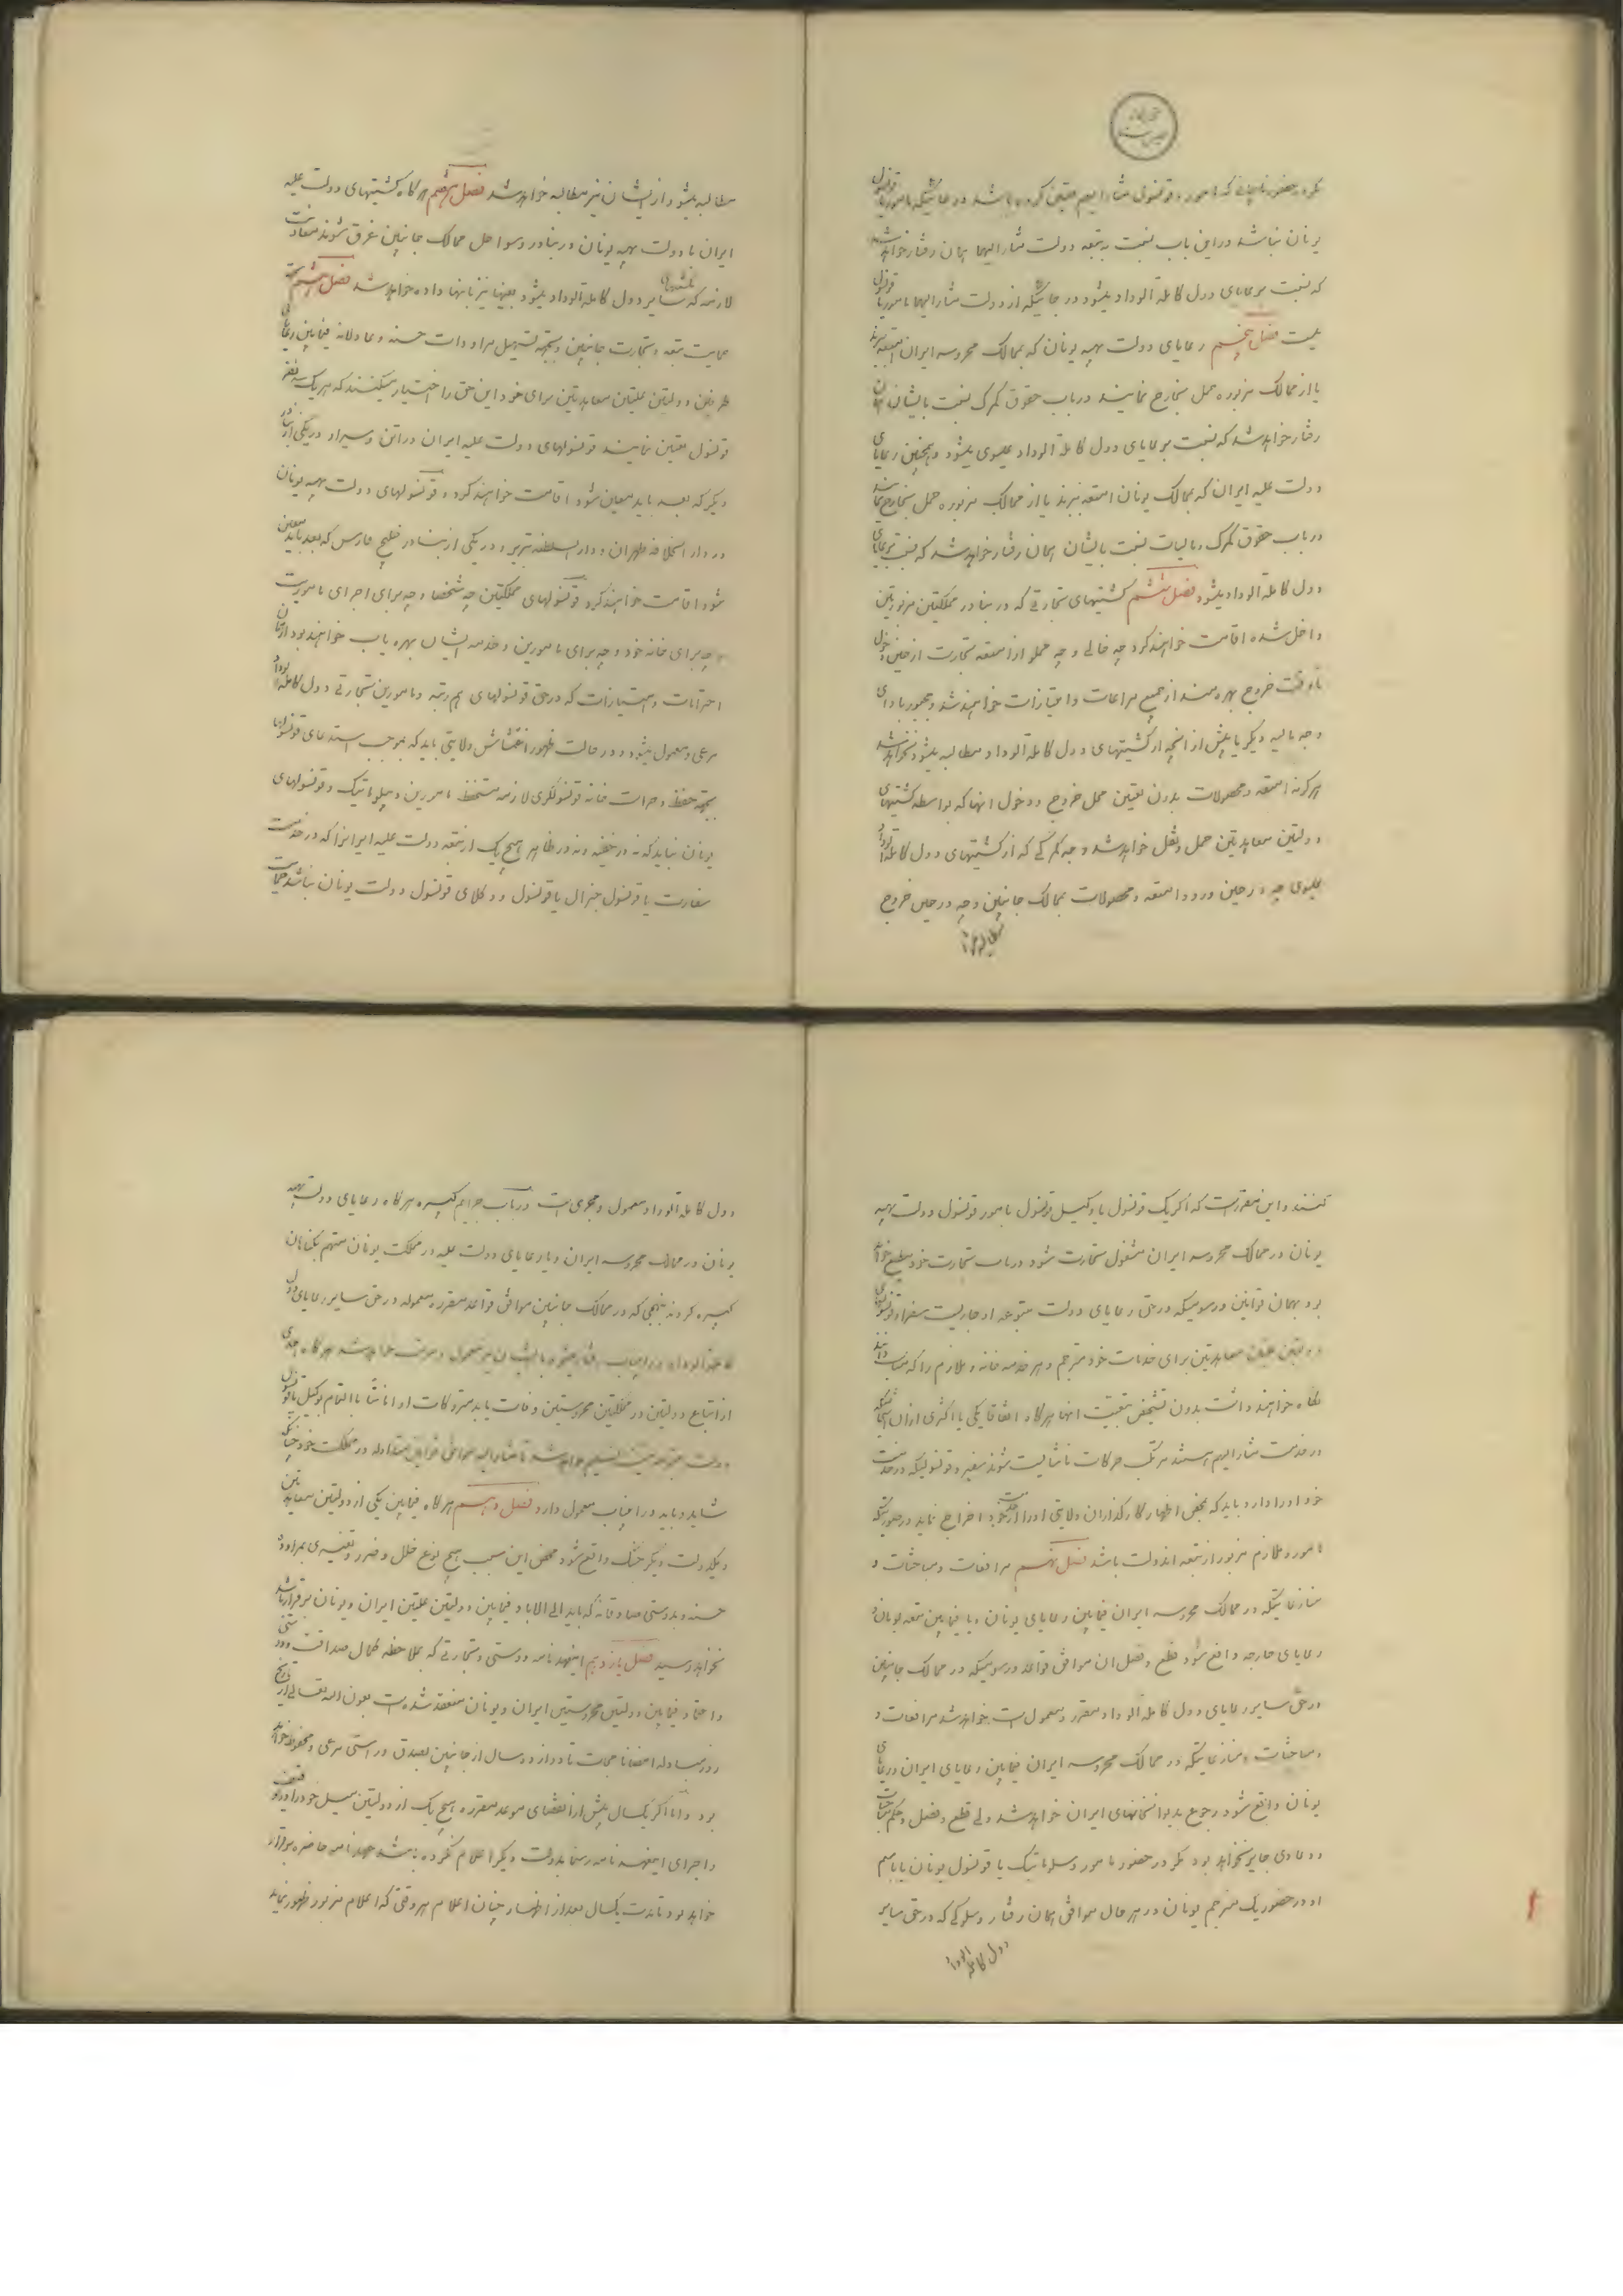 یونان نباشد در این باب نسبت به تبعه دولت مشار الیهما همان رفتار خواهد شد
که نسبت برعایای دول کاملة الوداد میشود در جائیکه از دولت مشار الیهما مامور یا قونسول
نیست فصل پنجم رعایای دولت بهیه یونان که بممالک محروسه ایران امتعه ببرند
یا از ممالک مزبوره حمل بخارج نمایند در باب حقوق گمرک نسبت بایشان همان
رفتار خواهد شد که نسبت برعایای دول کاملة الوداد عیسوی میشود و همچنین رعایای
دولت علیه ایران که بممالک یونان امتعه ببرند یا از ممالک مزبوره حمل بخارج نمایند
در باب حقوق گمرک و مالیات نسبت بایشان همان رفتار خواهد شد که نسبت برعایای
دول کاملة الوداد میشود فصل ششم کشتیهای تجارتی که در بنادر مملکتین مزبورتین
داخل شده اقامت خواهند کرد چه خالی و چه مملو از امتعه تجارت از حین دخول
تا وقت خروج بهره مند از جمیع مراعات و امتیازات خواهند شد و مجبور بادای
وجه مالیه دیگر یا بیش از آنچه از کشتیهای دول کاملة الوداد مطالبه میشود نخواهند شد
هر گونه امتعه و محصولات بدون تعیین محل خروج و دخول آنها که بواسطه کشتیهای
دولتین معاهدتین حمل و نقل خواهد شد وجه گمرکی که از کشتیهای دول کاملة الوداد
عیسوی چه در حین ورود امتعه و محصولات بممالک جانبین و چه در حین خروج
مطالبه میشود از ایشان نیز مطالبه خواهد شد فصل هفتم هر گاه کشتیهای دولت علیه
ایران یا دولت بهیه یونان در بنادر و سواحل ممالک جانبین غرق شوند معاونت
لازمه که بکشتیهای سایر دول کاملة الوداد میشود بعینها نیز بآنها داده خواهد شد فصل هشتم بجهة
حمایت تبعه و تجارت جانبین و بجهة تسهیل مراودات حسنه و عادلانه فیمابین رعایای
طرفین دولتین علیتین معاهدتین برای خود این حق را اختیار میکنند که هر یک سه نفر
قونسول تعیین نمایند قونسولهای دولت علیه ایران در اتن و سیرا و در یکی از بنادر
دیگر که بعد باید معین شود اقامت خواهند کرد و قونسولهای دولت بهیه یونان
در دار الخلافه طهران و دار السلطنه تبریز و در یکی از بنادر خلیج فارس که بعد باید معین
شود اقامت خواهند کرد قونسولهای مملکتین چه شخصا و چه برای اجرای ماموریت
و چه برای خانه خود و چه برای مامورین و خدمه ایشان بهره یاب خواهند بود از همان
احترامات و امتیازات که در حق قونسولهای هم رتبه و مامورین تجارتی دول کاملة الوداد
مرعی و معمول میشود و در حالت ظهور اغتشاش ولایتی باید که بموجب استدعای قونسولها
بجهة حفظ و حراست خانه قونسولگری لازمه مستحفظ مامورین دیپلوماتیک و قونسولهای
یونان نباید که نه در خفیه و نه در ظاهر هیچ یک از تبعه دولت علیه ایران را که در خدمت
سفارت یا قونسول جنرال یا قونسول و وکلای قونسول دولت یونان نباشد حمایت
کنند و این مقرر است که اگر یک قونسول یا وکیل قونسول مامور قونسول دولت بهیه
یونان در ممالک محروسه ایران مشغول تجارت شود در باب تجارت خود مطیع خواهد
بود بهمان قوانین و رسومیکه در حق رعایای دولت متبوعه او جاریست سفرا و قونسولهای
دولتین علیتین معاهدتین برای خدمات خود مترجم و هر خدمه خانه و ملازم را که مناسب دانند
نگاه خواهند داشت بدون تشخیص تبعیت آنها هر گاه اتفاقا یکی یا اکثری از آن اشخاصیکه
در خدمت مشار الیهم هستند مرتکب حرکات ناشایست شوند سفیر و قونسولیکه در خدمت
خود او را دارد باید که بمحض اظهار کارگذاران ولایتی او را از خدمت خود اخراج نماید در صورتیکه
مامور و ملازم مزبور از تبعه آندولت باشد فصل نهم مرافعات و مباحثات و
منازعاتیکه در ممالک محروسه ایران فیمابین رعایای یونان و یا فیمابین تبعه یونان و
رعایای خارجه واقع شود قطع و فصل آن موافق قواعد و رسومیکه در ممالک جانبین
در حق سایر رعایای دول کاملة الوداد مقرر و معمول است خواهد شد مرافعات و
مباحثات و منازعاتیکه در ممالک محروسه ایران فیمابین رعایای ایران و رعایای
یونان واقع شود رجوع بدیوانخانهای ایران خواهد شد ولی قطع و فصل و حکم مباحثات
و دعاوی جایز نخواهد بود مگر در حضور مامور دیپلوماتیک یا قونسول یونان یا باسم
او در حضور یک مترجم یونان در هر حال موافق همان رفتار و سلوکی که در حق سایر
دول کاملة الوداد
دول کاملة الوداد معمول و مجری است در باب جرایم کبیره هر گاه رعایای دولت بهیه
یونان در ممالک محروسه ایران و یا رعایای دولت علیه در مملکت یونان متهم بگناهان
کبیره کردند بنهجی که در ممالک جانبین موافق قواعد مقرره و معموله در حق سایر رعایای دول
کاملة الوداد در این باب رفتار میشود بایشان نیز معمول و مرتب خواهد شد هر گاه احدی
از اتباع دولتین در مملکتین محروستین وفات یابد متروکات او امانتا بالتمام بوکیل یا قونسول
شاید و باید در این باب معمول دارد فصل دهم هر گاه فیمابین یکی از دولتین معاهدتین
و یکدولت دیگر جنگ واقع شود محض این سبب هیچ نوع خلل و ضرر و تغییری بمراوده
حسنه و بدوستی صادقانه که باید الی الابد فیمابین دولتین علیتین ایران و یونان برقرار باشد
نخواهد رسید فصل یازدهم اینعهد نامه دوستی و تجارتی که بملاحظه کمال صداقت و دوستی
و اعتماد فیمابین دولتین محروستین ایران و یونان منعقد شده است بعون الله تعالی از تاریخ
روز مبادله امضانامجات تا دوازده سال از جانبین بصدق و راستی مرعی و محفوظ خواهد
بود و اما اگر یکسال پیش از انقضای موعد مقرره هیچ یک از دولتین میل خود را در توقیف
اجرای اینعهد نامه رسما بدولت دیگر اعلام نکرده باشد عهدنامه حاضره برقرار
خواهد بود تا مدت یکسال بعد از اظهار چنان اعلام هر وقتی که اعلام مزبور ظهور نماید